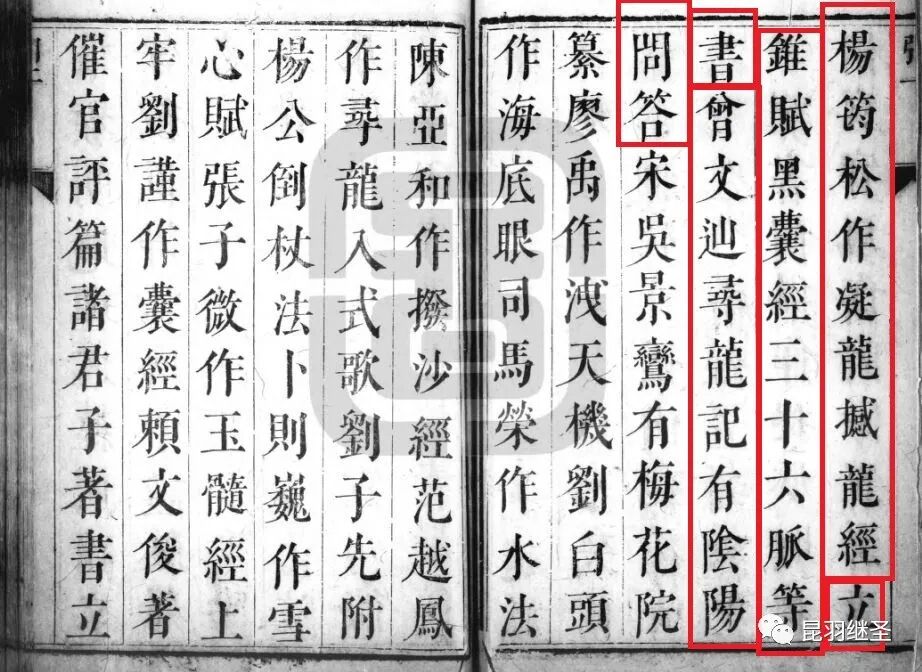 楊筠松作凝龍撼龍經立
錐賦黑囊經三十六脈等
書曾文辿尋龍記有陰陽
問答宋吳景鸞有梅花院
纂廖禹作洩天機劉白頭
作海底眼司馬榮作水法
陳亞和作撥沙經范越鳳
作尋龍入式歌劉子先附
楊公倒杖法卜則巍作雪
心賦張子微作玉髓經上
牢劉謹作囊經賴文俊著
催官評篇諸君子著書立
昆羽继圣